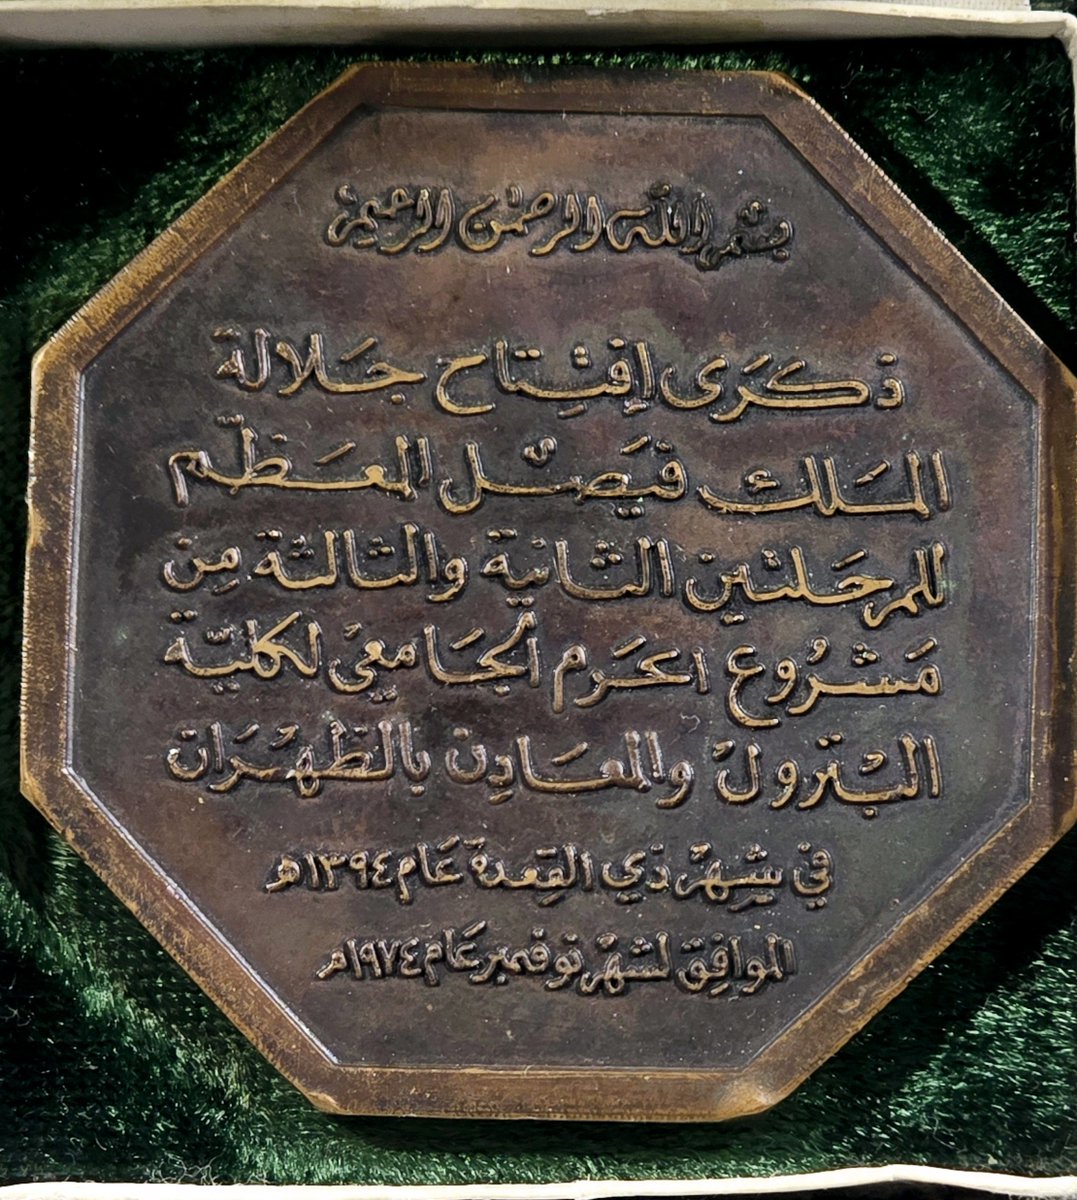 بسم الله الرحمن الرحيم
ذكرى افتتاح جلالة
الملك فيصل المعظم
للمرحلتين الثانية والثالثة من
مشروع الحرم الجامعي لكلية
البترول والمعادن بالظهران
في شهر ذي القعدة عام ١٣٩٤هـ
الموافق لشهر نوفمبر عام ١٩٧٤م